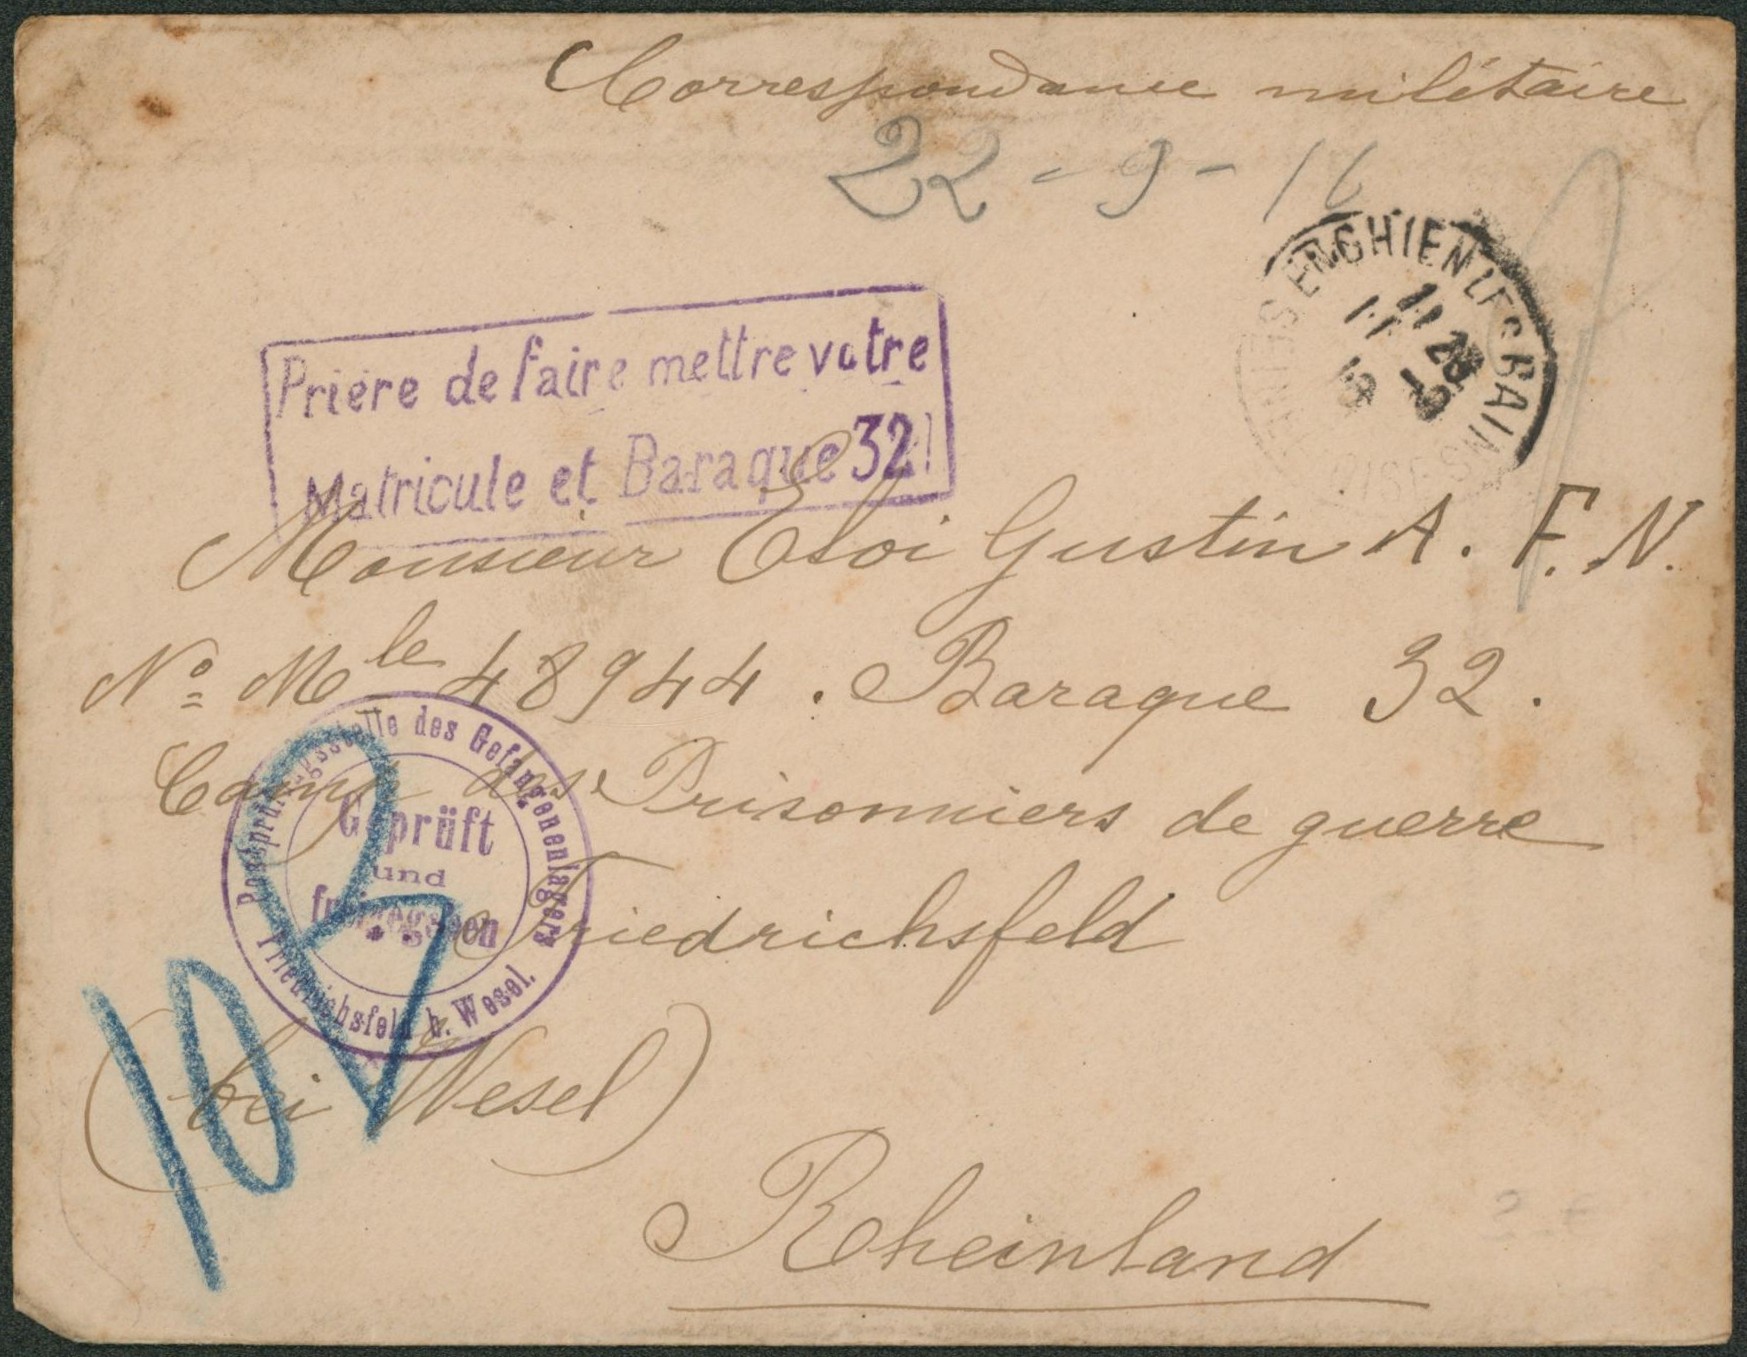 Correspondance militaire
22 - 9 - 16
ENGHIEN LES BAINS
Prière de faire mettre votre
Matricule et Baraque 32!
Monsieur Eloi Gustin A. F. N.
No Mle 48944. Baraque 32.
Camp des Prisonniers de guerre
Friedrichsfeld
(bei Wesel)
Rheinland
Postprüfungsstelle des Gefangenenlagers
Friedrichsfeld b. Wesel.
Geprüft
und
freigegeben